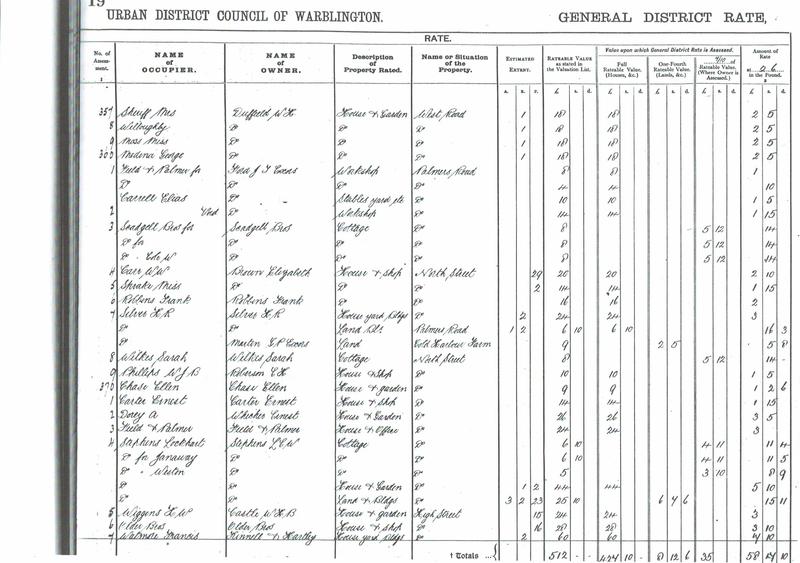 19
URBAN DISTRICT COUNCIL OF WARBLINGTON. GENERAL DISTRICT RATE,
RATE.
No. of Assessment. NAME OF OCCUPIER. NAME OF OWNER. Description of Property Rated. Name or Situation of the Property. ESTIMATED EXTENT. RATEABLE VALUE as stated in the Valuation List. Value upon which General District Rate is Assessed. Full Rateable Value. (Houses, &c.) One-Fourth Rateable Value. (Lands, &c.) Rateable Value. (Where Owner is Assessed.) Amount of Rate at 2/6 in the Pound.
a. r. p. £ s. d. £ s. d. £ s. d. £ s. d. £ s. d.
357 Duffield W. H. House & Garden West Road 1 18 18 2 5
8 Willoughby Do Do Do 1 18 18 2 5
9 Moss Miss Do Do Do 1 18 18 2 5
360 Medina George Do Do Do 1 18 18 2 5
1 Field & Palmer for Workshop Palmers Road 8 8 1
Do Do Do Do 4 4 10
Carrett Elias Do Stables yard etc Do 10 10 1 5
2 Do Workshop Do 14 14 1 15
3 Soadgell Bros for Soadgell Bros Cottage Do 8 5 12 14
Do for Do Do Do 8 5 12 14
Do Do Do Do 8 5 12 14
4 Carr W. W. Brown Elizabeth House & Shop North Street 29 20 20 2 10
5 Sprake Miss Do Do Do 2 14 14 1 15
6 Robbins Frank Robbins Frank Do Do 16 16 2
7 Silver H. R. Silver H. R. House yard bldgs Do 2 24 24 3
Do Do Land Palmers Road 1 2 6 10 6 10 16 3
Do Land Cold Harbour Farm 9 2 5 5 8
8 Wilkes Sarah Wilkes Sarah Cottage North Street 8 5 12 14
9 Phillips W J B Roberson House & Shop Do 10 10 1 5
370 Chase Ellen Chase Ellen House & garden Do 9 9 1 2 6
1 Carter Ernest Carter Ernest House & shop Do 14 14 1 15
2 Dorey A Wheeler Ernest House & Garden Do 26 26 3 5
3 Field & Palmer Field & Palmer House & Office Do 24 24 3
4 Stephens Lockhart Stephens Cottage Do 6 10 4 11 11 4
Do for Janaway Do Do Do 6 10 4 11 11 5
Do " Weston Do Do Do 5 3 10 8 9
Do Do House & Garden Do 1 2 44 44 5 10
Do Do Land & Bldgs Do 3 2 23 25 10 6 7 6 15 11
5 Wiggins H. W Castle W. H. B House & garden High Street 15 24 24 3
6 Older Bros Older Bros House & shop Do 16 28 28 3 10
7 Watmore Francis Kinnell & Hartley House yard bldgs Do 2 60 60 7 10
† Totals ... 512 424 10 8 12 6 35 58 17 10